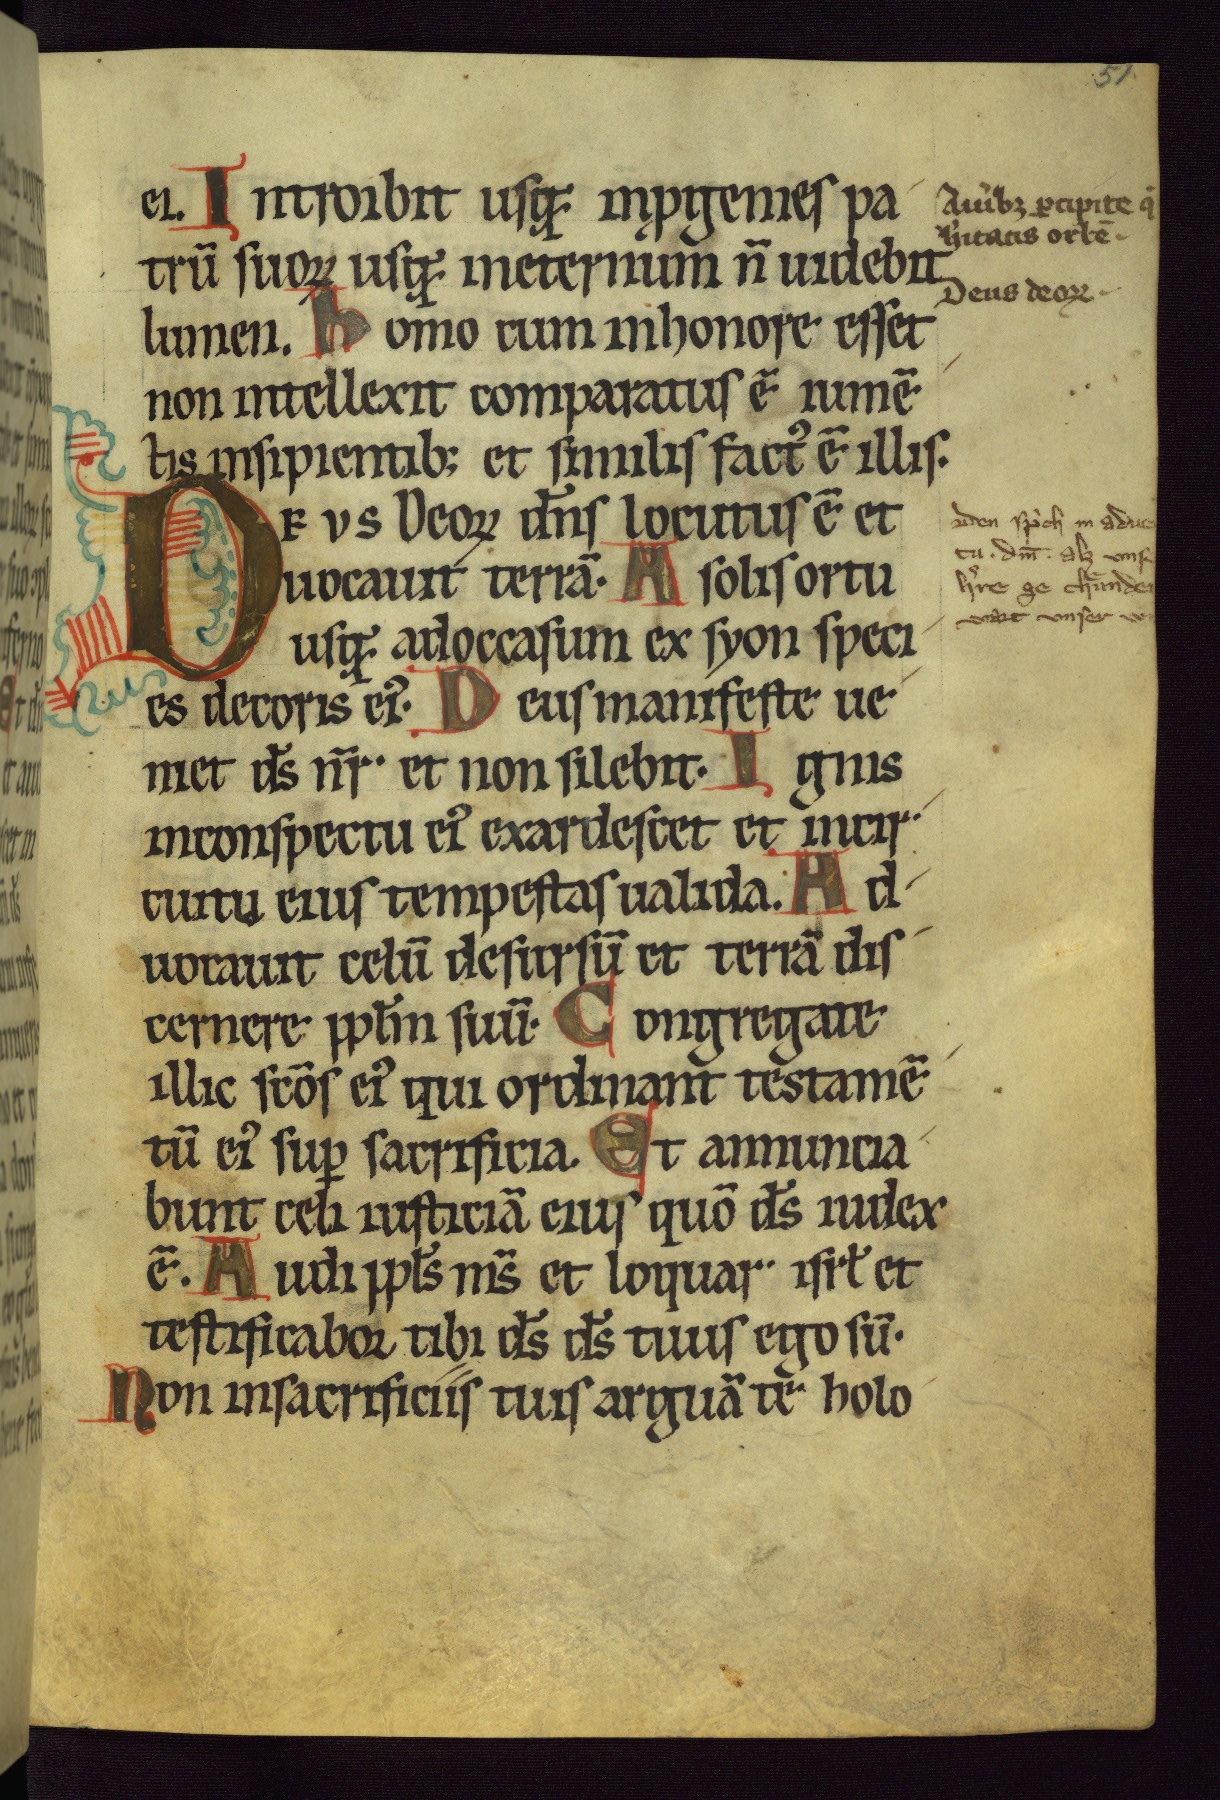 51.
ei. Introibit usq; inp̱genies pa
trū suoꝝ usq; ineternum n̄ uidebit
lumen. homo cum inhonore esset
non intellexit comparatus ē iumē
tis insipientib; et similis factꝰ ē illis.
DEVS Deoꝝ dn̄s locutus ē et
uocauit terrā. A solis ortu
usq; adoccasum ex syon speci
es decoris eiꝰ. Deus manifeste ue
niet ds̄ nr̄ et non silebit. Ignis
inconspectu eiꝰ exardescet et incir
cuitu eius tempestas ualida. Ad
uocauit celū desursū et terrā dis
cernere pplm̄ suū. Congregate
illic scōs eiꝰ qui ordinant testamē
tū eiꝰ suꝑ sacrificia. Et annuncia
bunt celi iusticiā eius quō ds̄ iudex
ē. Audi ppls̄ ms̄ et loquar isrl̄ et
testificabor tibi ds̄ ds̄ tuus ego sū.
Non insacrificiis tuis arguā te holo
Aurib; ꝑcipite q̄
hitatis orbē
Deus deoꝝ
den sp̄ch in adue
tu . dn̄i . alz unse
h're ge chunde
wart unser